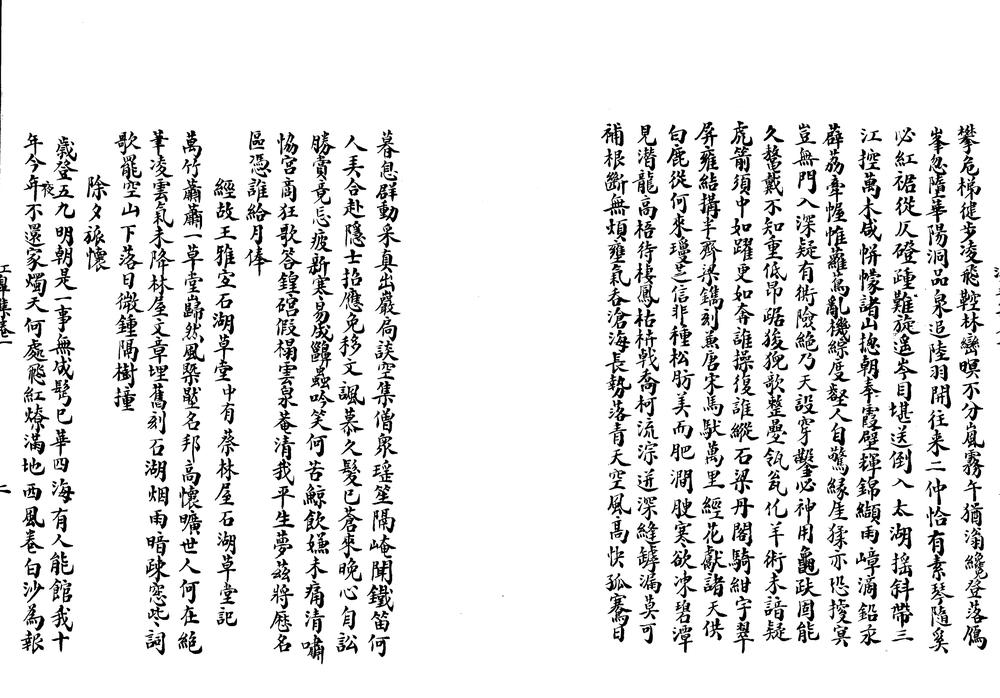 攀危梯徤步凌飛鞚林巒暝不分嵐霧午猶滃纔登落鴈
峯忽墮華陽洞品泉追陸羽開往来二仲恰有素琴隨奚
必紅裙從仄磴踵難旋遥岑目堪送倒入太湖摇斜帶三
江控萬木咸帡幪諸山揔朝奉霞壁輝錦纈雨嶂滴鉛汞
薜荔牽幄帷蘿蔦亂機綜度壑人自驚緣崖猱亦恐摉冥
豈無門入深疑有衖險絶乃天設穿鑿必神用龜趺固能
久鰲戴不知重低昂踞狻猊歌整疊瓴瓮化羊術未諳疑
虎箭須中如躍更如奔誰操復誰縱石梁丹閣騎紺宇翠
屏雍結搆半齊梁鐫刻兼唐宋馬馱萬里經花獻諸天供
白鹿從何来瓊芝信非種松肪美而肥澗腴寒欲冰碧潭
見潜龍高梧待棲鳳枯枿戟喬柯流淙迸深縫罅漏莫可
補根斷無煩壅氣吞滄海長勢落青天空風高快孤騫日
暮息群動采真出巖扃談空集僧衆瑶笙隔崦聞鐵笛何
人弄合赴隱士招應免移文諷慕久髮已蒼來晚心自訟
勝賞竟忘疲新寒易成齆蟲吟笑何苦鯨飲嫌未痛清嘯
恊宮商狂歌答鍠硿假禢雲泉菴清我平生夢茲將歴名
區憑誰給月俸
經故王雅宜石湖草堂中有蔡林屋石湖草堂記
萬竹蕭蕭一草堂巋然風槩壓名邦高懷曠世人何在絶
筆凌雲氣未降林屋文章埋舊刻石湖烟雨暗疎窓些詞
歌罷空山下落日微鍾隔樹撞
除夕旅懷
歲登五九明朝是一事無成髩已華四海有人能館我十
年今夜年不還家燭天何處飛紅燎滿地西風卷白沙為報